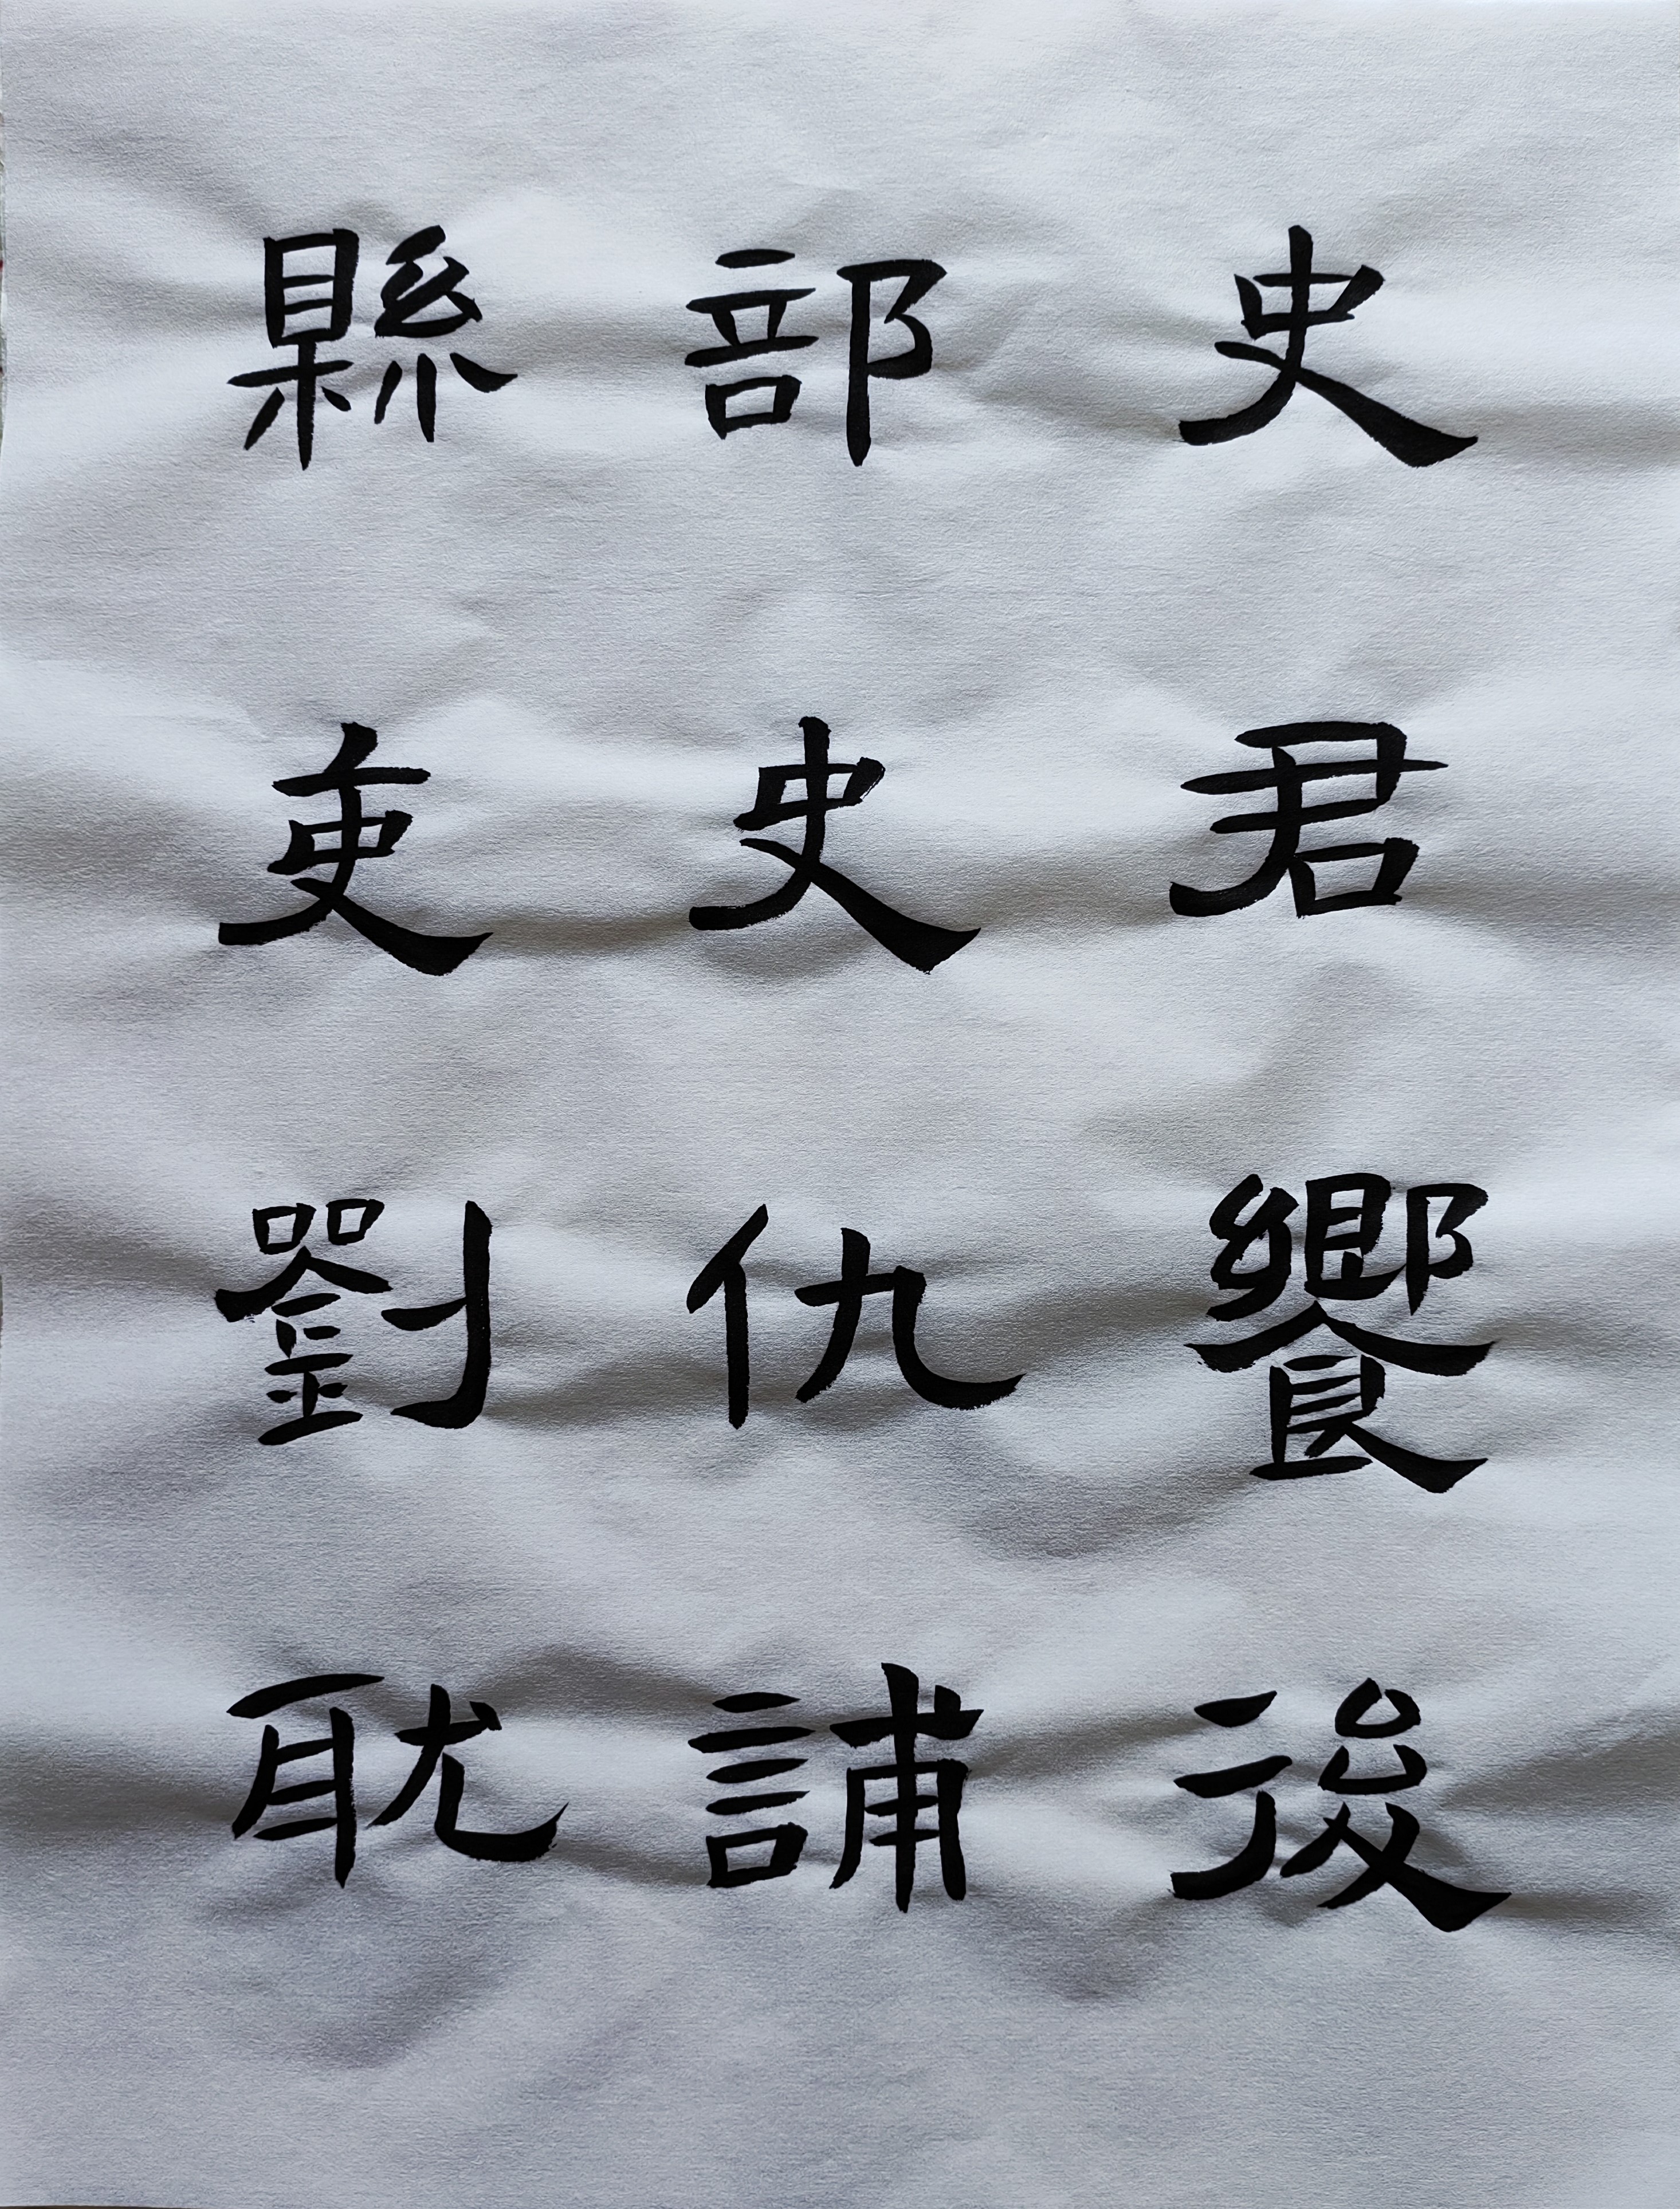 史君饗後
部史仇誧
縣吏劉耽